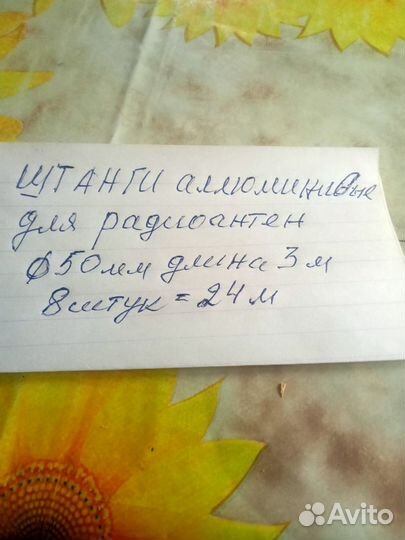 ШТАНГИ аллюминивые
для радиоантен
ϕ50мм длина 3м
8штук = 24м
Avito